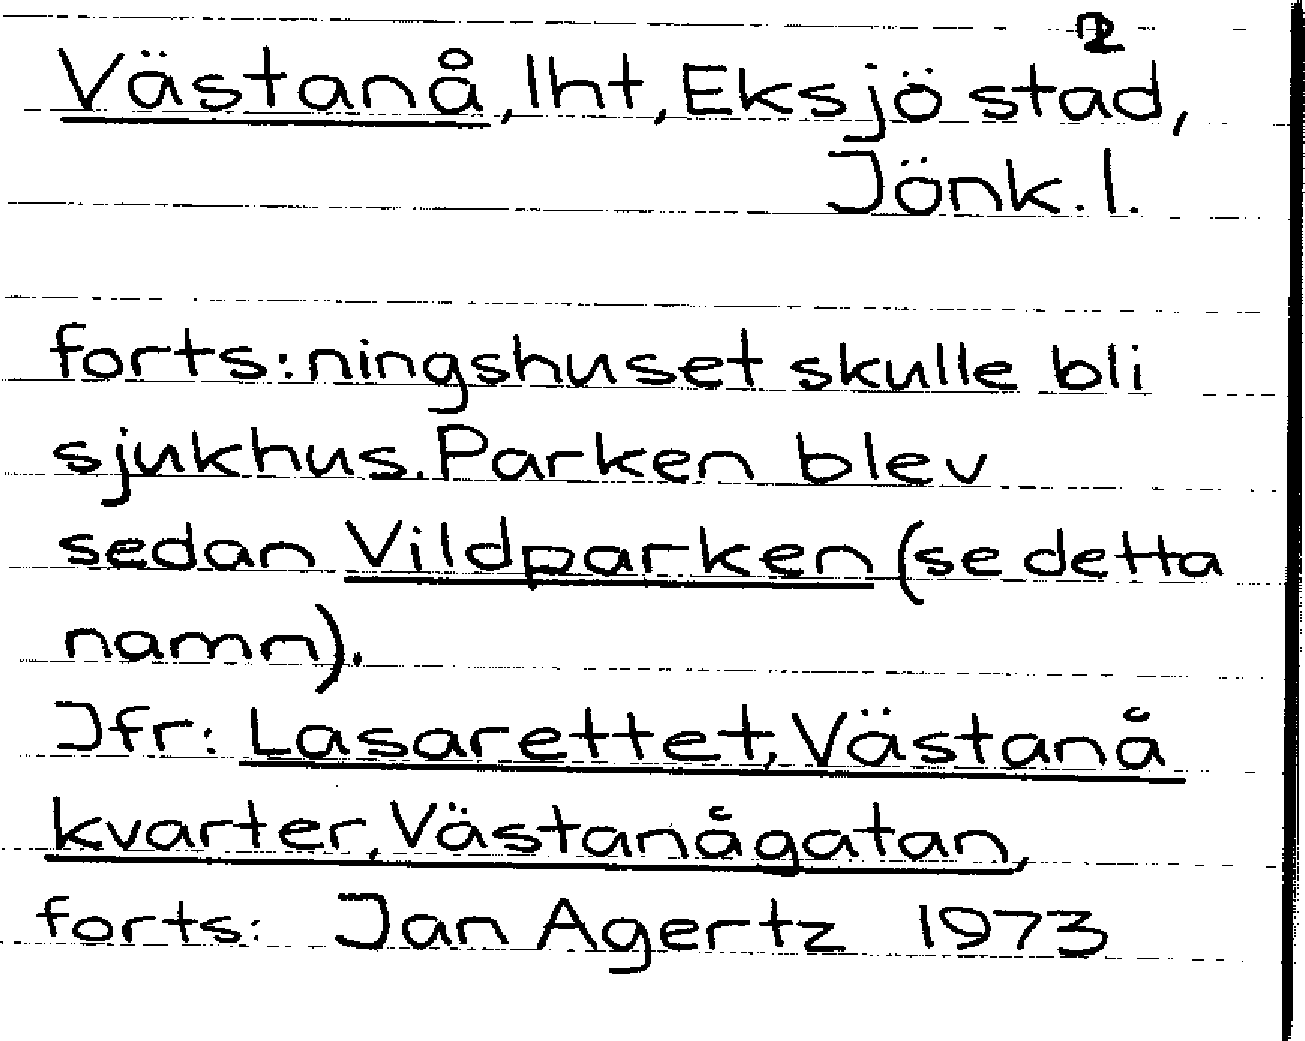 2
Västanå, lht, Eksjö stad,
Jönk. l.
forts: ningshuset skulle bli
sjukhus. Parken blev
sedan Vildparken (se detta
namn).
Jfr: Lasarettet, Västanå
kvarter, Västanågatan,
forts: Jan Agertz 1973